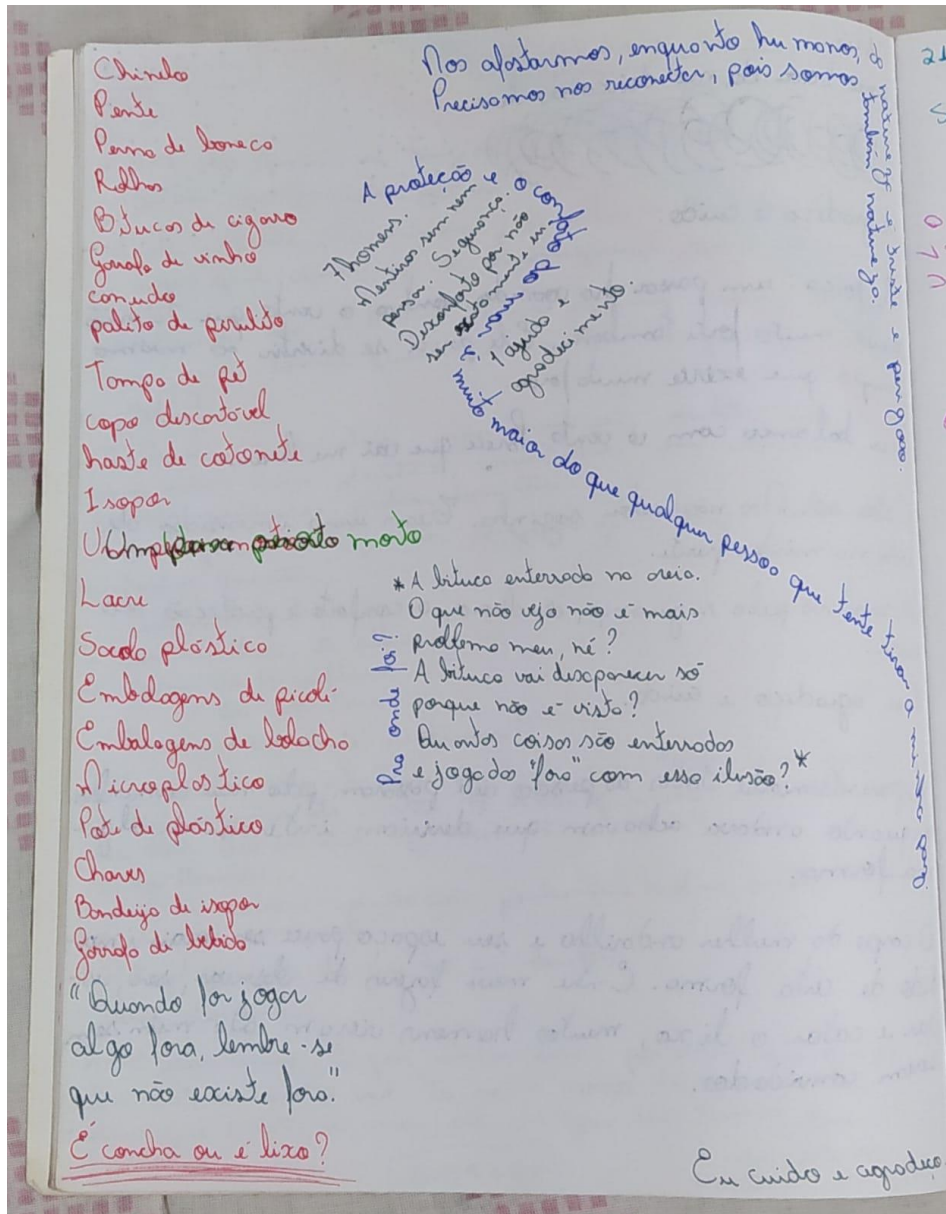 Chinelo
Pente
Perna de boneca
Rolhas
Bitucas de cigarro
Garrafa de vinho
canudo
palito de pirulito
Tampa de pet
copo descartável
haste de cotonete
Isopor
morto
Lacre
Sacola plástica
Embalagens de picolé
Embalagens de bolacha
Microplástico
Pote de plástico
Chaves
Bandeija de isopor
Garrafa de bebida
"Quando for jogar
algo fora, lembre-se
que não existe fora."
É concha ou é lixo?
Nos afastarmos, enquanto humanos, da natureza é triste e perigoso.
Precisamos nos reconectar, pois somos também natureza.
A proteção e o conforto do mar é muito maior do que qualquer pessoa que tente tirar a minha paz
7 homens.
Mentiras sem nem
pensar. Segurança.
Desconforto por não
ser
1 ajuda e
agradecimento
Pra onde foi?
*A bituca enterrada na areia.
O que não vejo não é mais
problema meu, né?
A bituca vai desaparecer só
porque não é vista?
Quantas coisas são enterradas
e jogadas "fora" com essa ilusão?*
Eu cuido e agradeço.